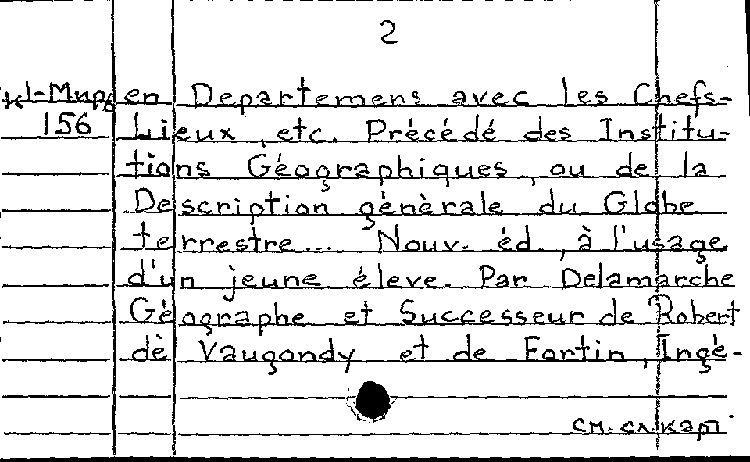 2
en Departemens avec les Chefs-
156 Lieux, etc. Précédé des Institu-
tions Géographiques, ou de la
Description gènèrale du Globe
terrestre... Nouv. éd., à l'usage
d'un jeune éleve. Par Delamarche
Gèographe et Successeur de Robert
dè Vaugondy et de Fortin, Ingè-
см. сл. карт.